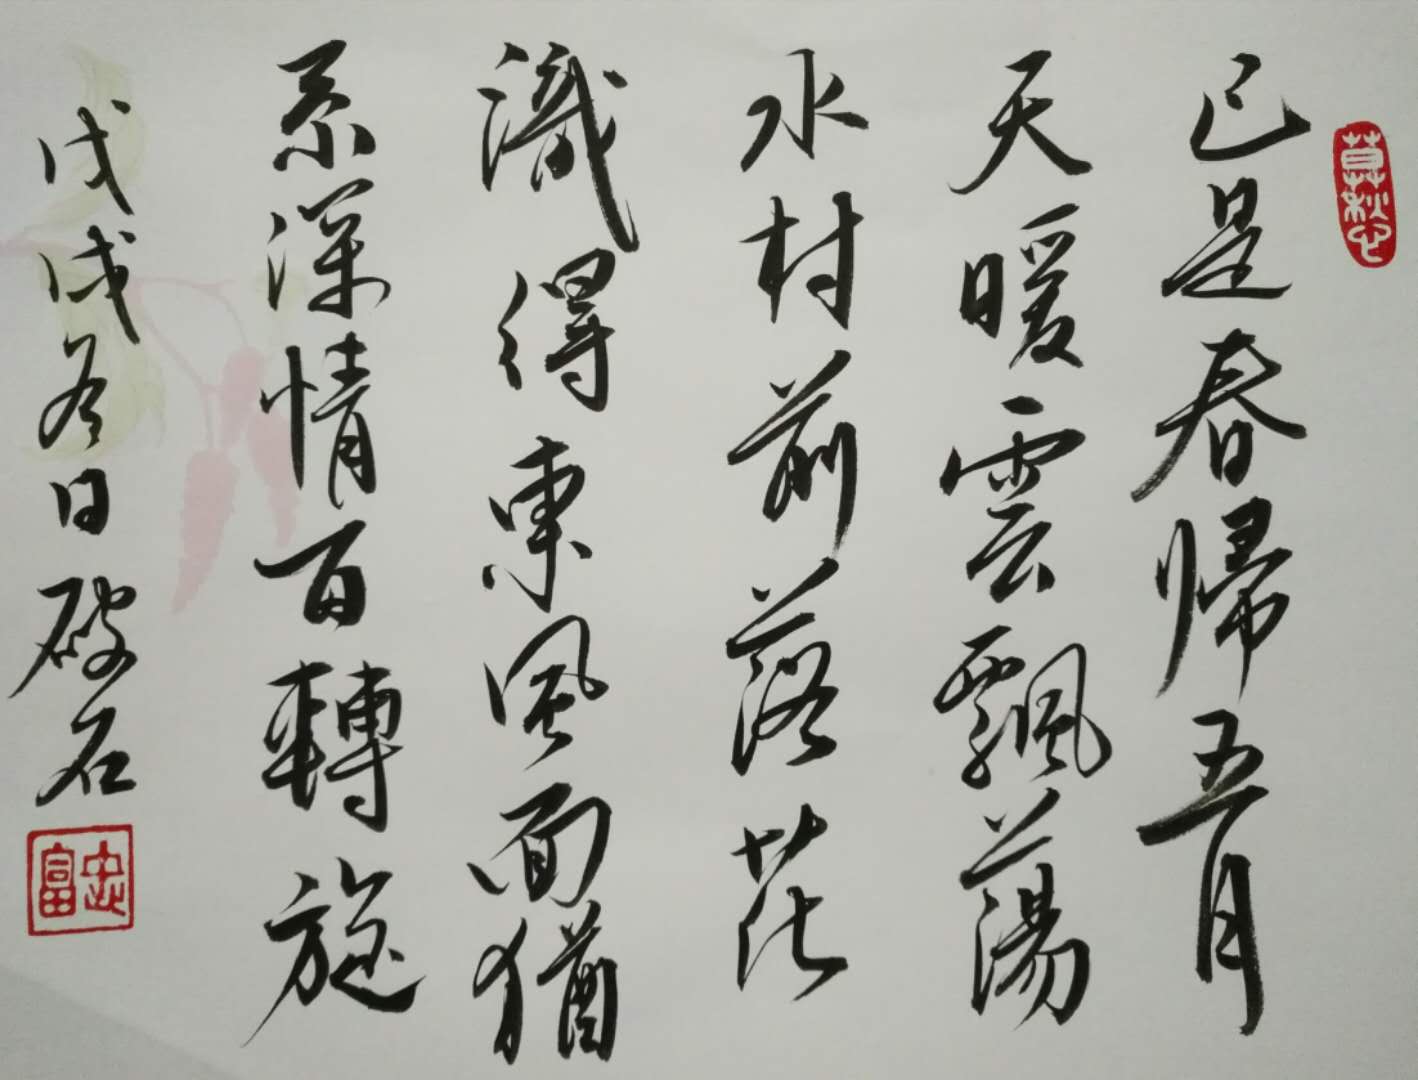 莫愁
已是春歸五月
天暖雲飄蕩
水村前落花
識得東風面猶
系深情百轉旋
戊戌冬日破石
忠富